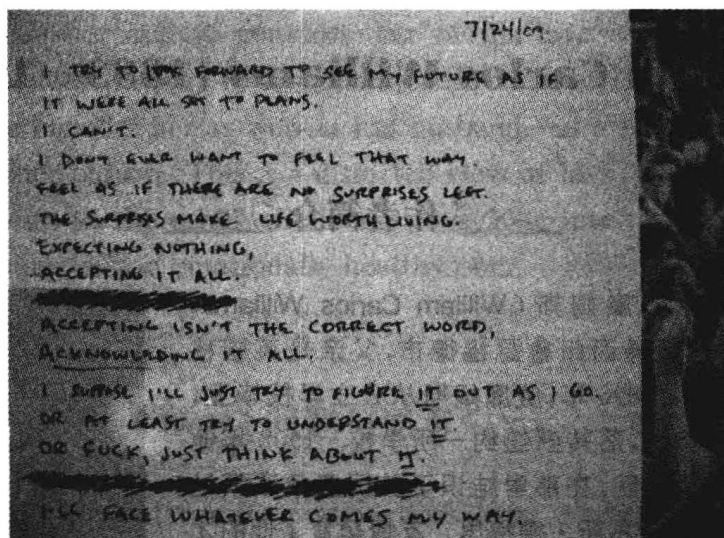 7/24/09
I TRY TO LOOK FORWARD TO SEE MY FUTURE AS IF
IT WERE ALL SET TO PLANS.
I CAN'T.
I DON'T EVER WANT TO FEEL THAT WAY.
FEEL AS IF THERE ARE NO SURPRISES LEFT.
THE SURPRISES MAKE LIFE WORTH LIVING.
EXPECTING NOTHING,
ACCEPTING IT ALL.
ACCEPTING ISN'T THE CORRECT WORD,
ACKNOWLADING IT ALL.
I SUPPOSE I'LL JUST TRY TO FIGURE IT OUT AS I GO.
OR AT LEAST TRY TO UNDERSTAND IT.
OR FUCK, JUST THINK ABOUT IT.
I'LL FACE WHATEVER COMES MY WAY.
William Carlos William